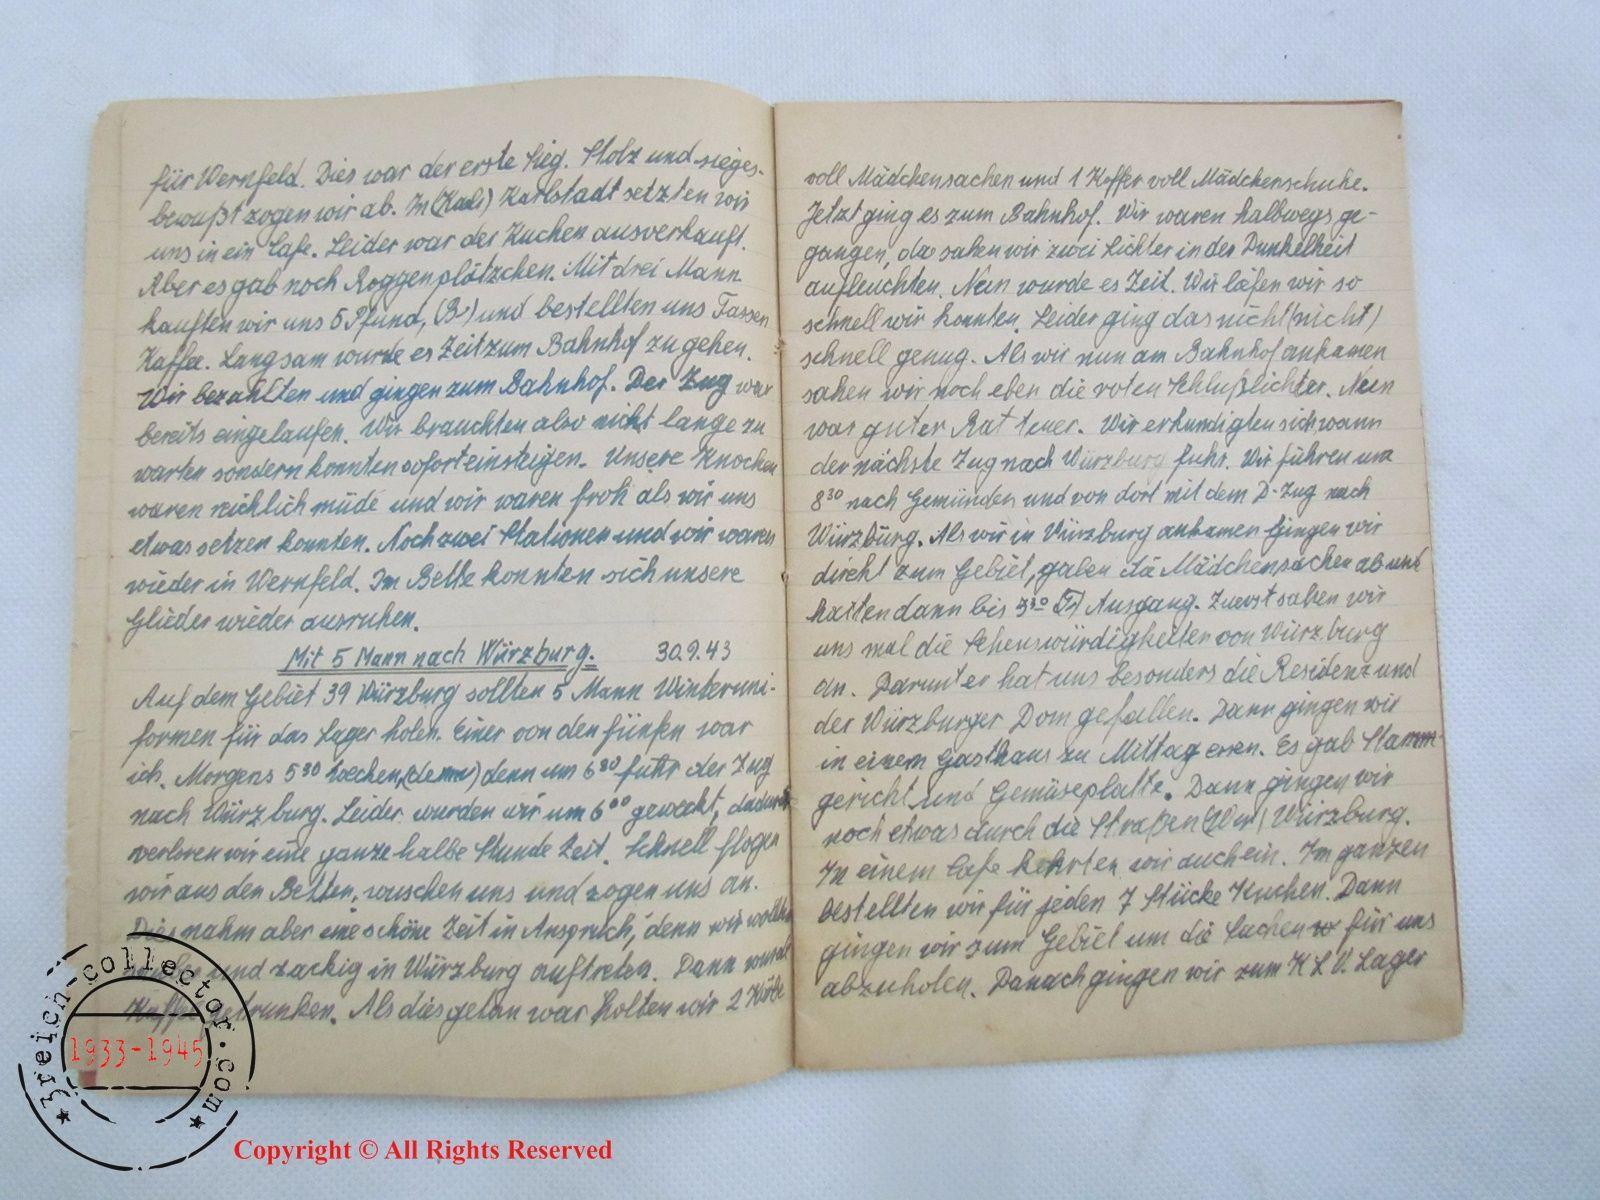 für Wernfeld. Dies war der erste Sieg. Stolz und sieges-
bewußt zogen wir ab. In (Kals) Karlstadt setzten wir
uns in ein Cafe. Leider war der Kuchen ausverkauft.
Aber es gab noch Roggenplätzchen. Mit drei Mann
kauften wir uns 5 Pfund, und bestellten uns Tassen
Kaffee. Langsam wurde es Zeit zum Bahnhof zu gehen.
Wir bezahlten und gingen zum Bahnhof. Der Zug war
bereits eingelaufen. Wir brauchten also nicht lange zu
warten sondern konnten sofort einsteigen. Unsere Knochen
waren reichlich müde und wir waren froh als wir uns
etwas setzen konnten. Noch zwei Stationen und wir waren
wieder in Wernfeld. Im Bette konnten sich unsere
Glieder wieder ausruhen.
Mit 5 Mann nach Würzburg. 30.9.43
Auf dem Gebiet 39 Würzburg sollten 5 Mann Winteruni-
formen für das Lager holen. Einer von den fünfen war
ich. Morgens 5 30 Wecken, (denn) denn um 6 30 fuhr der Zug
nach Würzburg. Leider wurden wir um 6 00 geweckt, dadurch
verloren wir eine ganze halbe Stunde Zeit. Schnell flogen
wir aus den Betten, wuschen uns und zogen uns an.
Dies nahm aber eine schöne Zeit in Anspruch, denn wir wollten
und zackig in Würzburg auftreten. Dann wurde
Kaffee getrunken. Als dies getan war holten wir 2 Körbe
voll Mädchensachen und 1 Koffer voll Mädchenschuhe.
Jetzt ging es zum Bahnhof. Wir waren halbwegs ge-
gangen, da sahen wir zwei Lichter in der Dunkelheit
aufleuchten. Nun wurde es Zeit. Wir liefen wir so
schnell wir konnten. Leider ging das nicht (nicht)
schnell genug. Als wir nun am Bahnhof ankamen
sahen wir noch eben die roten Schlußlichter. Nun
war guter Rat teuer. Wir erkundigten sich wann
der nächste Zug nach Würzburg fuhr. Wir führen um
8 30 nach Gemünden und von dort mit dem D-Zug nach
Würzburg. Als wir in Würzburg ankamen gingen wir
direkt zum Gebiet, gaben die Mädchensachen ab und
hatten dann bis 3 30 Ausgang. Zuerst sahen wir
uns mal die Sehenswürdigkeiten von Würzburg
an. Darunter hat uns besonders die Residenz und
der Würzburger Dom gefallen. Dann gingen wir
in einem Gasthaus zu Mittag essen. Es gab Stamm-
gericht und Gemüseplatte. Dann gingen wir
noch etwas durch die Straßen Würzburg.
In einem Cafe kehrten wir auch ein. Im ganzen
bestellten wir für jeden 7 Stücke Kuchen. Dann
gingen wir zum Gebiet um die Sachen für uns
abzuholen. Danach gingen wir zum K.L.V. Lager
3reich-collector.com
1933-1945
Copyright © All Rights Reserved